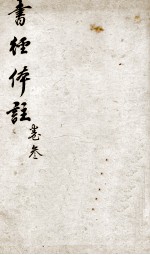 書經体註
卷叁